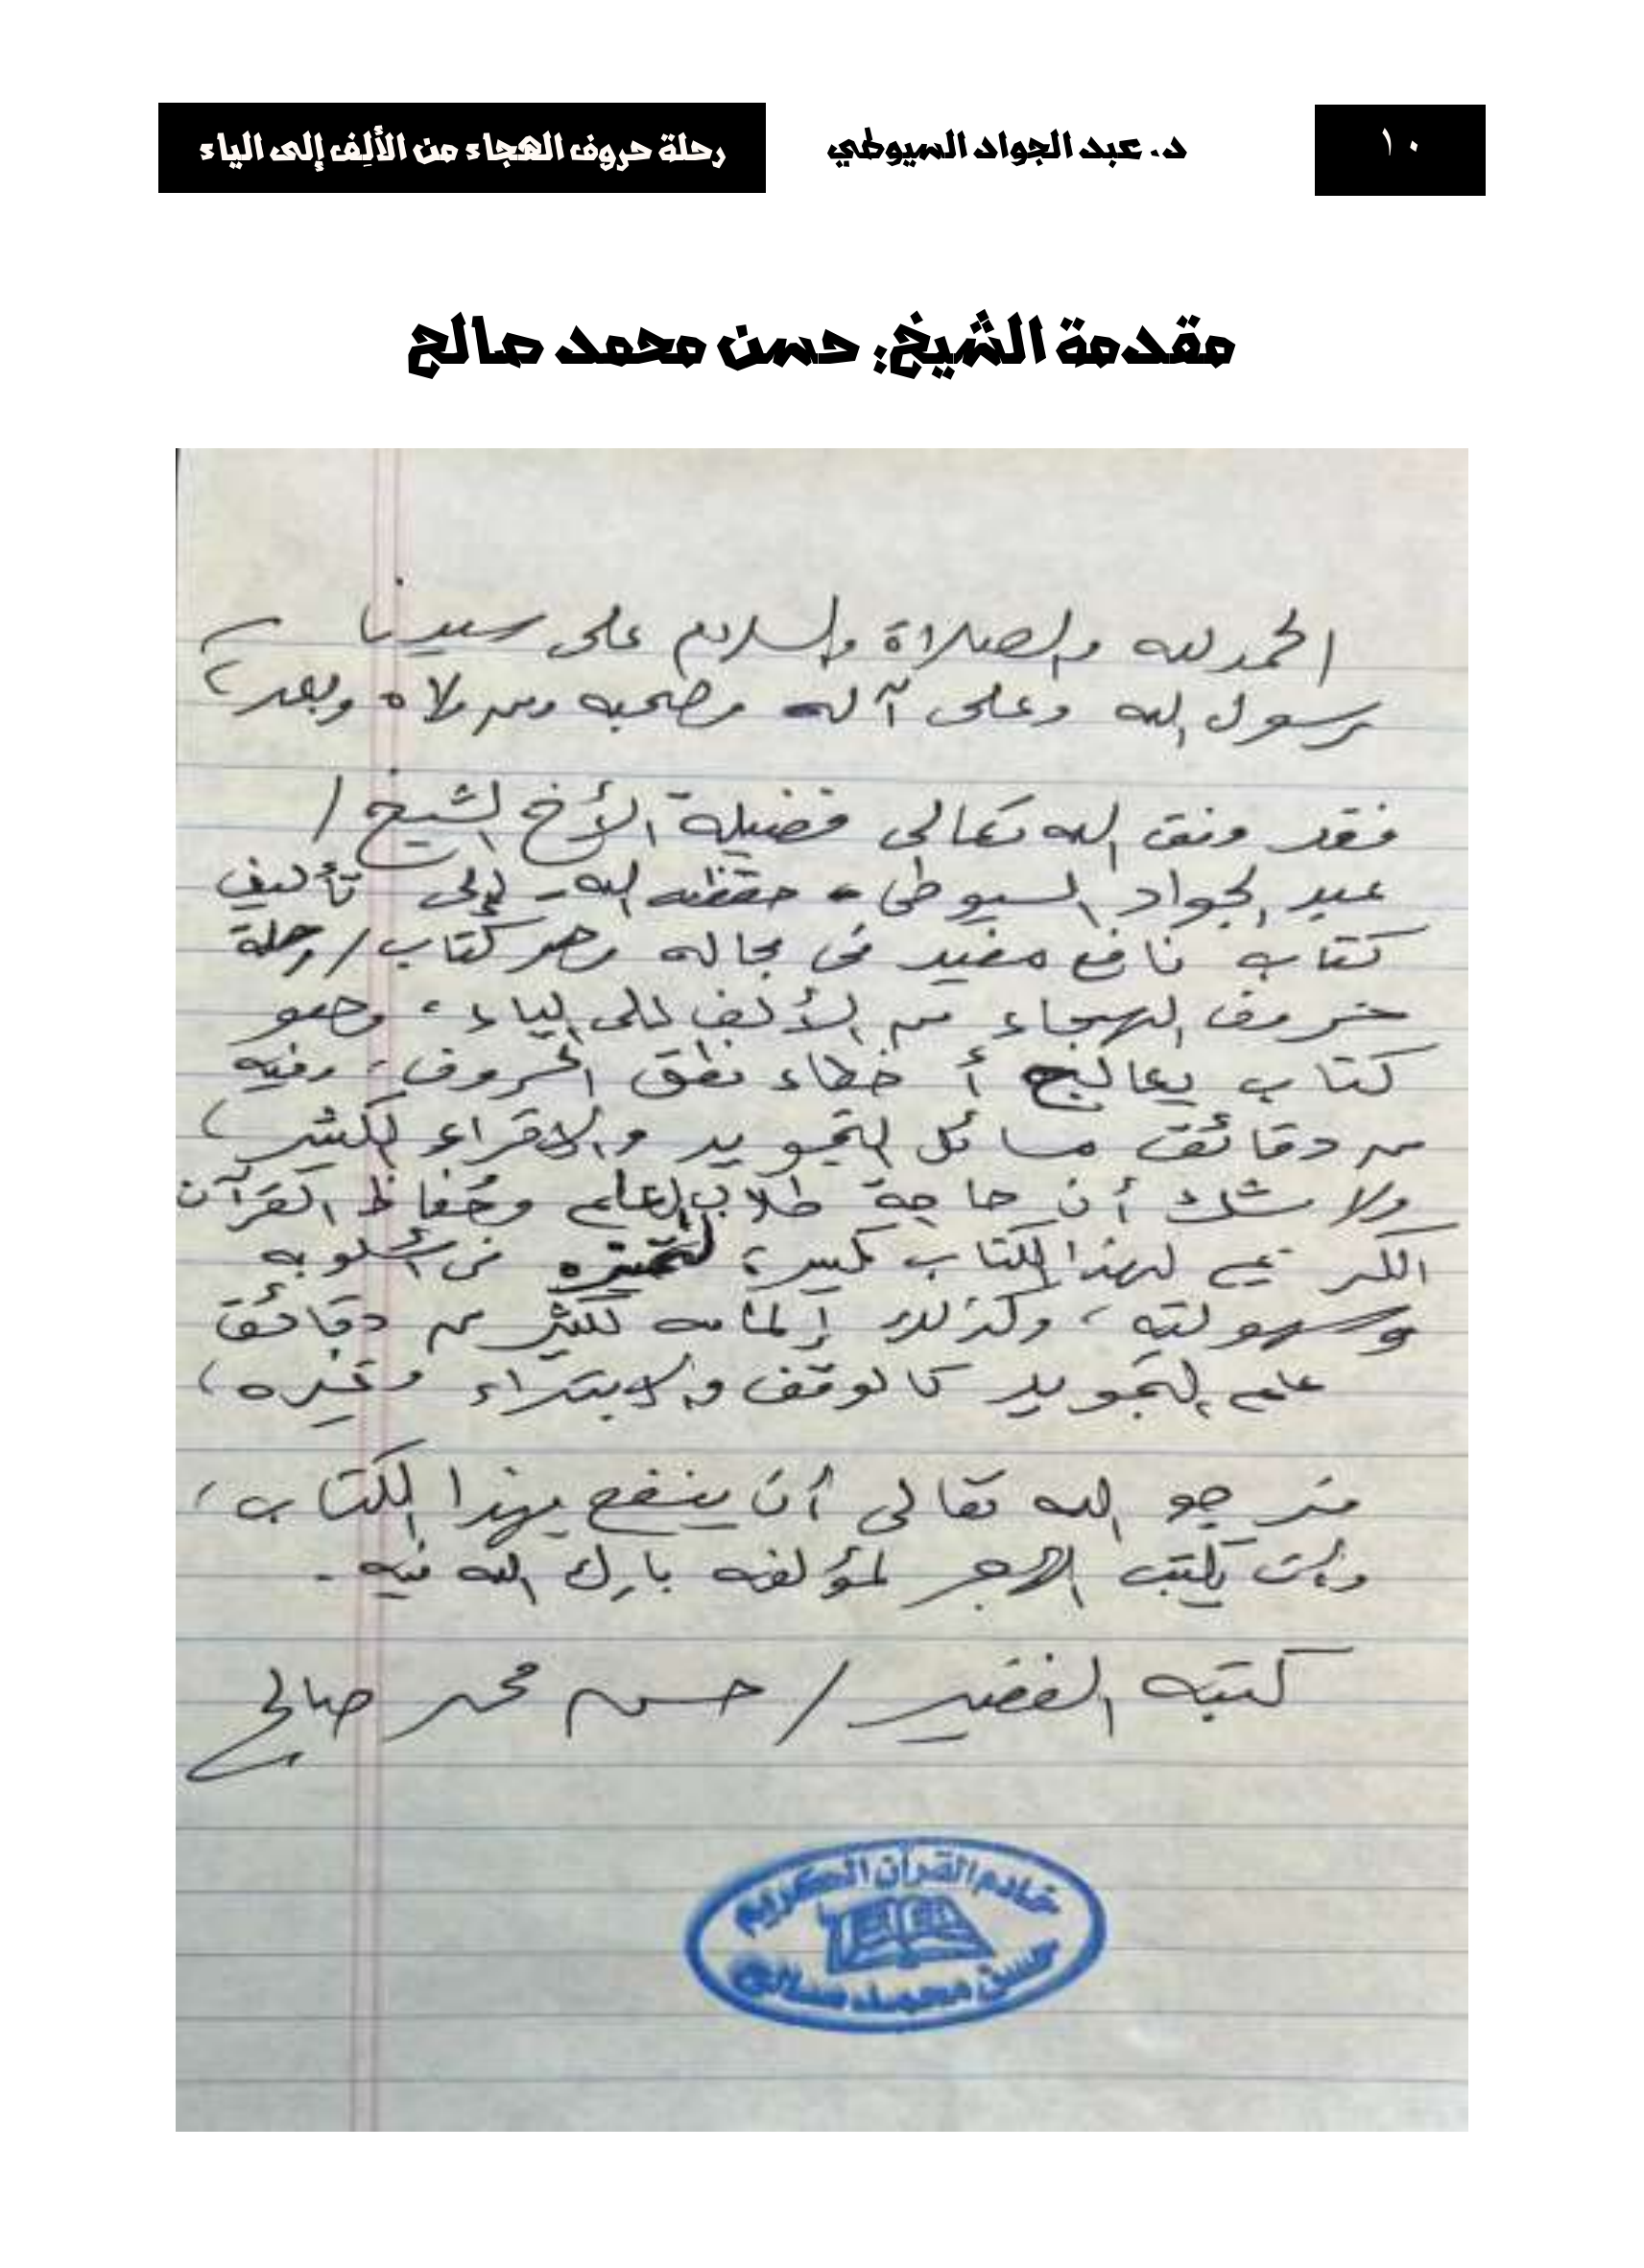 ١٠
د. عبد الجواد السيوطي
رحلة حروف الهجاء من الألِف إلى الياء
مقدمة الشيخ: حسن محمد صالح
الحمد لله والصلاة والسلام على سيدنا
رسول الله وعلى آله وصحبه ومن والاه وبعد،
فقد وفق الله تعالى فضيلة الأخ الشيخ /
عبد الجواد السيوطى - حفظه الله - إلى تأليف
كتاب نافع مفيد فى مجاله وهو كتاب / رحلة
حروف الهجاء من الألف إلى الياء، وهو
كتاب يعالج أخطاء نطق الحروف، وفيه
من دقائق مسائل التجويد والإقراء الكثير،
ولا شك أن حاجة طلاب العلم وحُفاظ القرآن
الكريم لهذا الكتاب كبير، لتميزه فى أسلوبه
وسهولته، وكذلك إلمامه لكثير من دقائق
علم التجويد كالوقف والابتداء وغيره،
فنرجو الله تعالى أن ينفع بهذا الكتاب،
وأن يكتب الأجر لمؤلفه بارك الله فيه.
كتبه الفقير / حسن محمد صالح
خادم القرآن الكريم
حسن محمد صالح